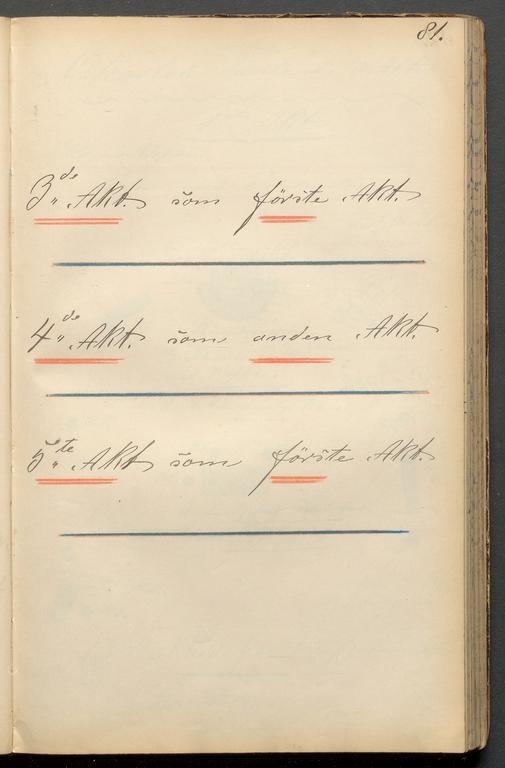 81.
3de Akt. som förste Akt.
4de Akt. som anden Akt.
5te Akt som förste Akt.